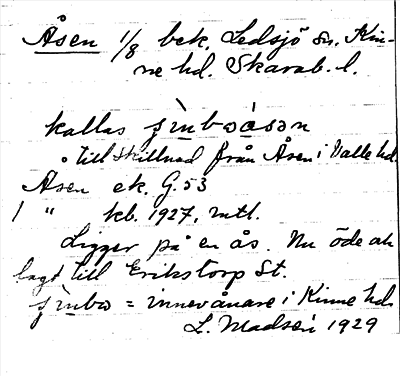 Åsen 1/8 bek. Ledsjö sn. Kin-
ne hd. Skarab. l.
kallas
till skillnad från Åsen i Valle hd.
Åsen ek. G. 53
1 " kb. 1927, mtl.
Ligger på en ås. Nu öde och
lagt till Erikstorp St.
= innevånare i Kinne hd.
L. Madsén 1929